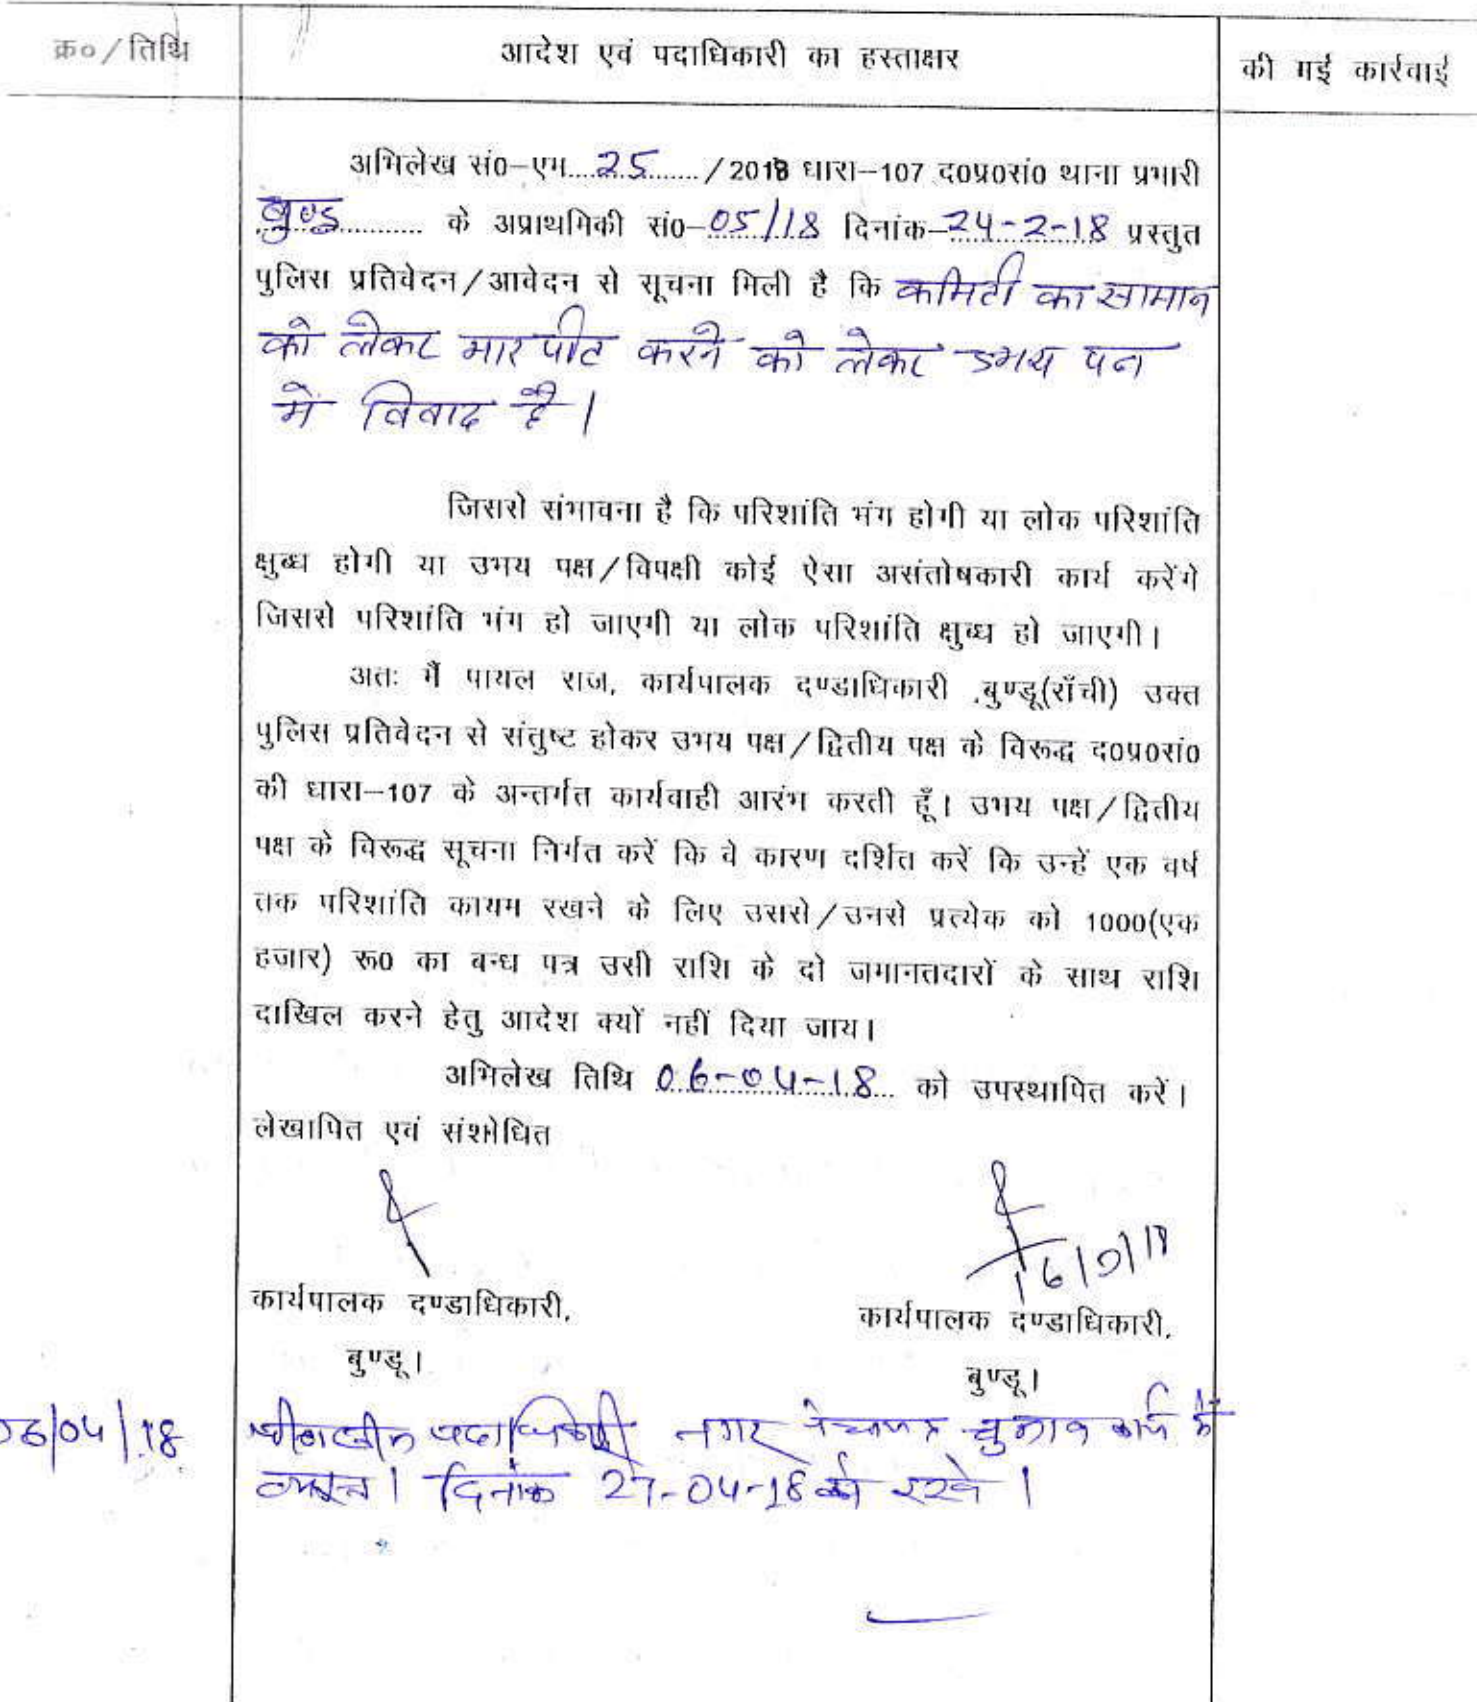 क्र०/तिथि
आदेश एवं पदाधिकारी का हस्ताक्षर
की गई कार्रवाई
अभिलेख सं0–एम....25....../2018 धारा–107 द0प्र0सं0 थाना प्रभारी
बुण्डू........... के अप्राथमिकी सं0–05/18 दिनांक–24-2-18 प्रस्तुत
पुलिस प्रतिवेदन/आवेदन से सूचना मिली है कि कमिटी का सामान
को लेकर मारपीट करने को लेकर उभय पक्ष
में विवाद है।
जिससे संभावना है कि परिशांति भंग होगी या लोक परिशांति
क्षुब्ध होगी या उभय पक्ष/विपक्षी कोई ऐसा असंतोषकारी कार्य करेंगे
जिससे परिशांति भंग हो जाएगी या लोक परिशांति क्षुब्ध हो जाएगी।
अतः मैं पायल राज, कार्यपालक दण्डाधिकारी ,बुण्डू(राँची) उक्त
पुलिस प्रतिवेदन से संतुष्ट होकर उभय पक्ष/द्वितीय पक्ष के विरूद्ध द0प्र0सं0
की धारा–107 के अन्तर्गत कार्यवाही आरंभ करती हूँ। उभय पक्ष/द्वितीय
पक्ष के विरूद्ध सूचना निर्गत करें कि वे कारण दर्शित करें कि उन्हें एक वर्ष
तक परिशांति कायम रखने के लिए उससे/उनसे प्रत्येक को 1000(एक
हजार) रू0 का बन्ध पत्र उसी राशि के दो जमानतदारों के साथ राशि
दाखिल करने हेतु आदेश क्यों नहीं दिया जाय।
अभिलेख तिथि 06-04-18 को उपस्थापित करें।
लेखापित एवं संशोधित
कार्यपालक दण्डाधिकारी,
बुण्डू।
कार्यपालक दण्डाधिकारी,
बुण्डू।
06/04/18 पीठासीन पदाधिकारी नगर पंचायत चुनाव कार्य में
व्यस्त। दिनांक 27-04-18 को रखें।